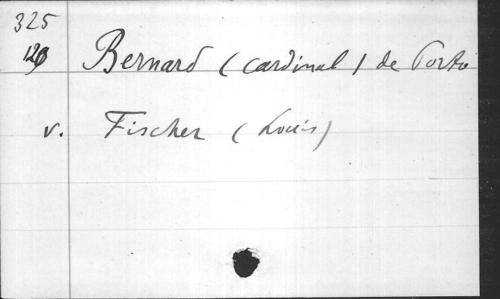 325
126 Bernard (cardinal) de Porto
v. Fischer (Louis)